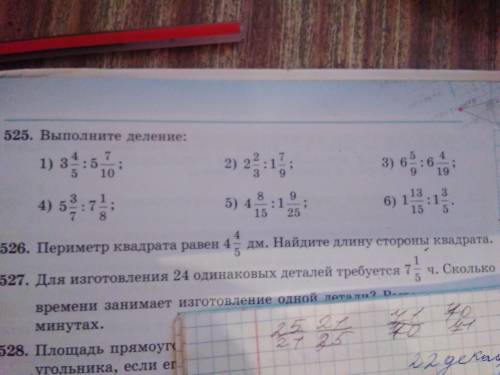 525. Выполните деление:
1) 3 4/5 : 5 7/10; 2) 2 2/3 : 1 7/9; 3) 6 5/9 : 6 4/19;
4) 5 3/7 : 7 1/8; 5) 4 8/15 : 1 9/25; 6) 1 13/15 : 1 3/5.
526. Периметр квадрата равен 4 4/5 дм. Найдите длину стороны квадрата.
527. Для изготовления 24 одинаковых деталей требуется 7 1/5 ч. Сколько
времени занимает изготовление одной детали?
минутах.
528. Площадь
угольника, если
25/21 21/25 41/40 40/41
22 дека